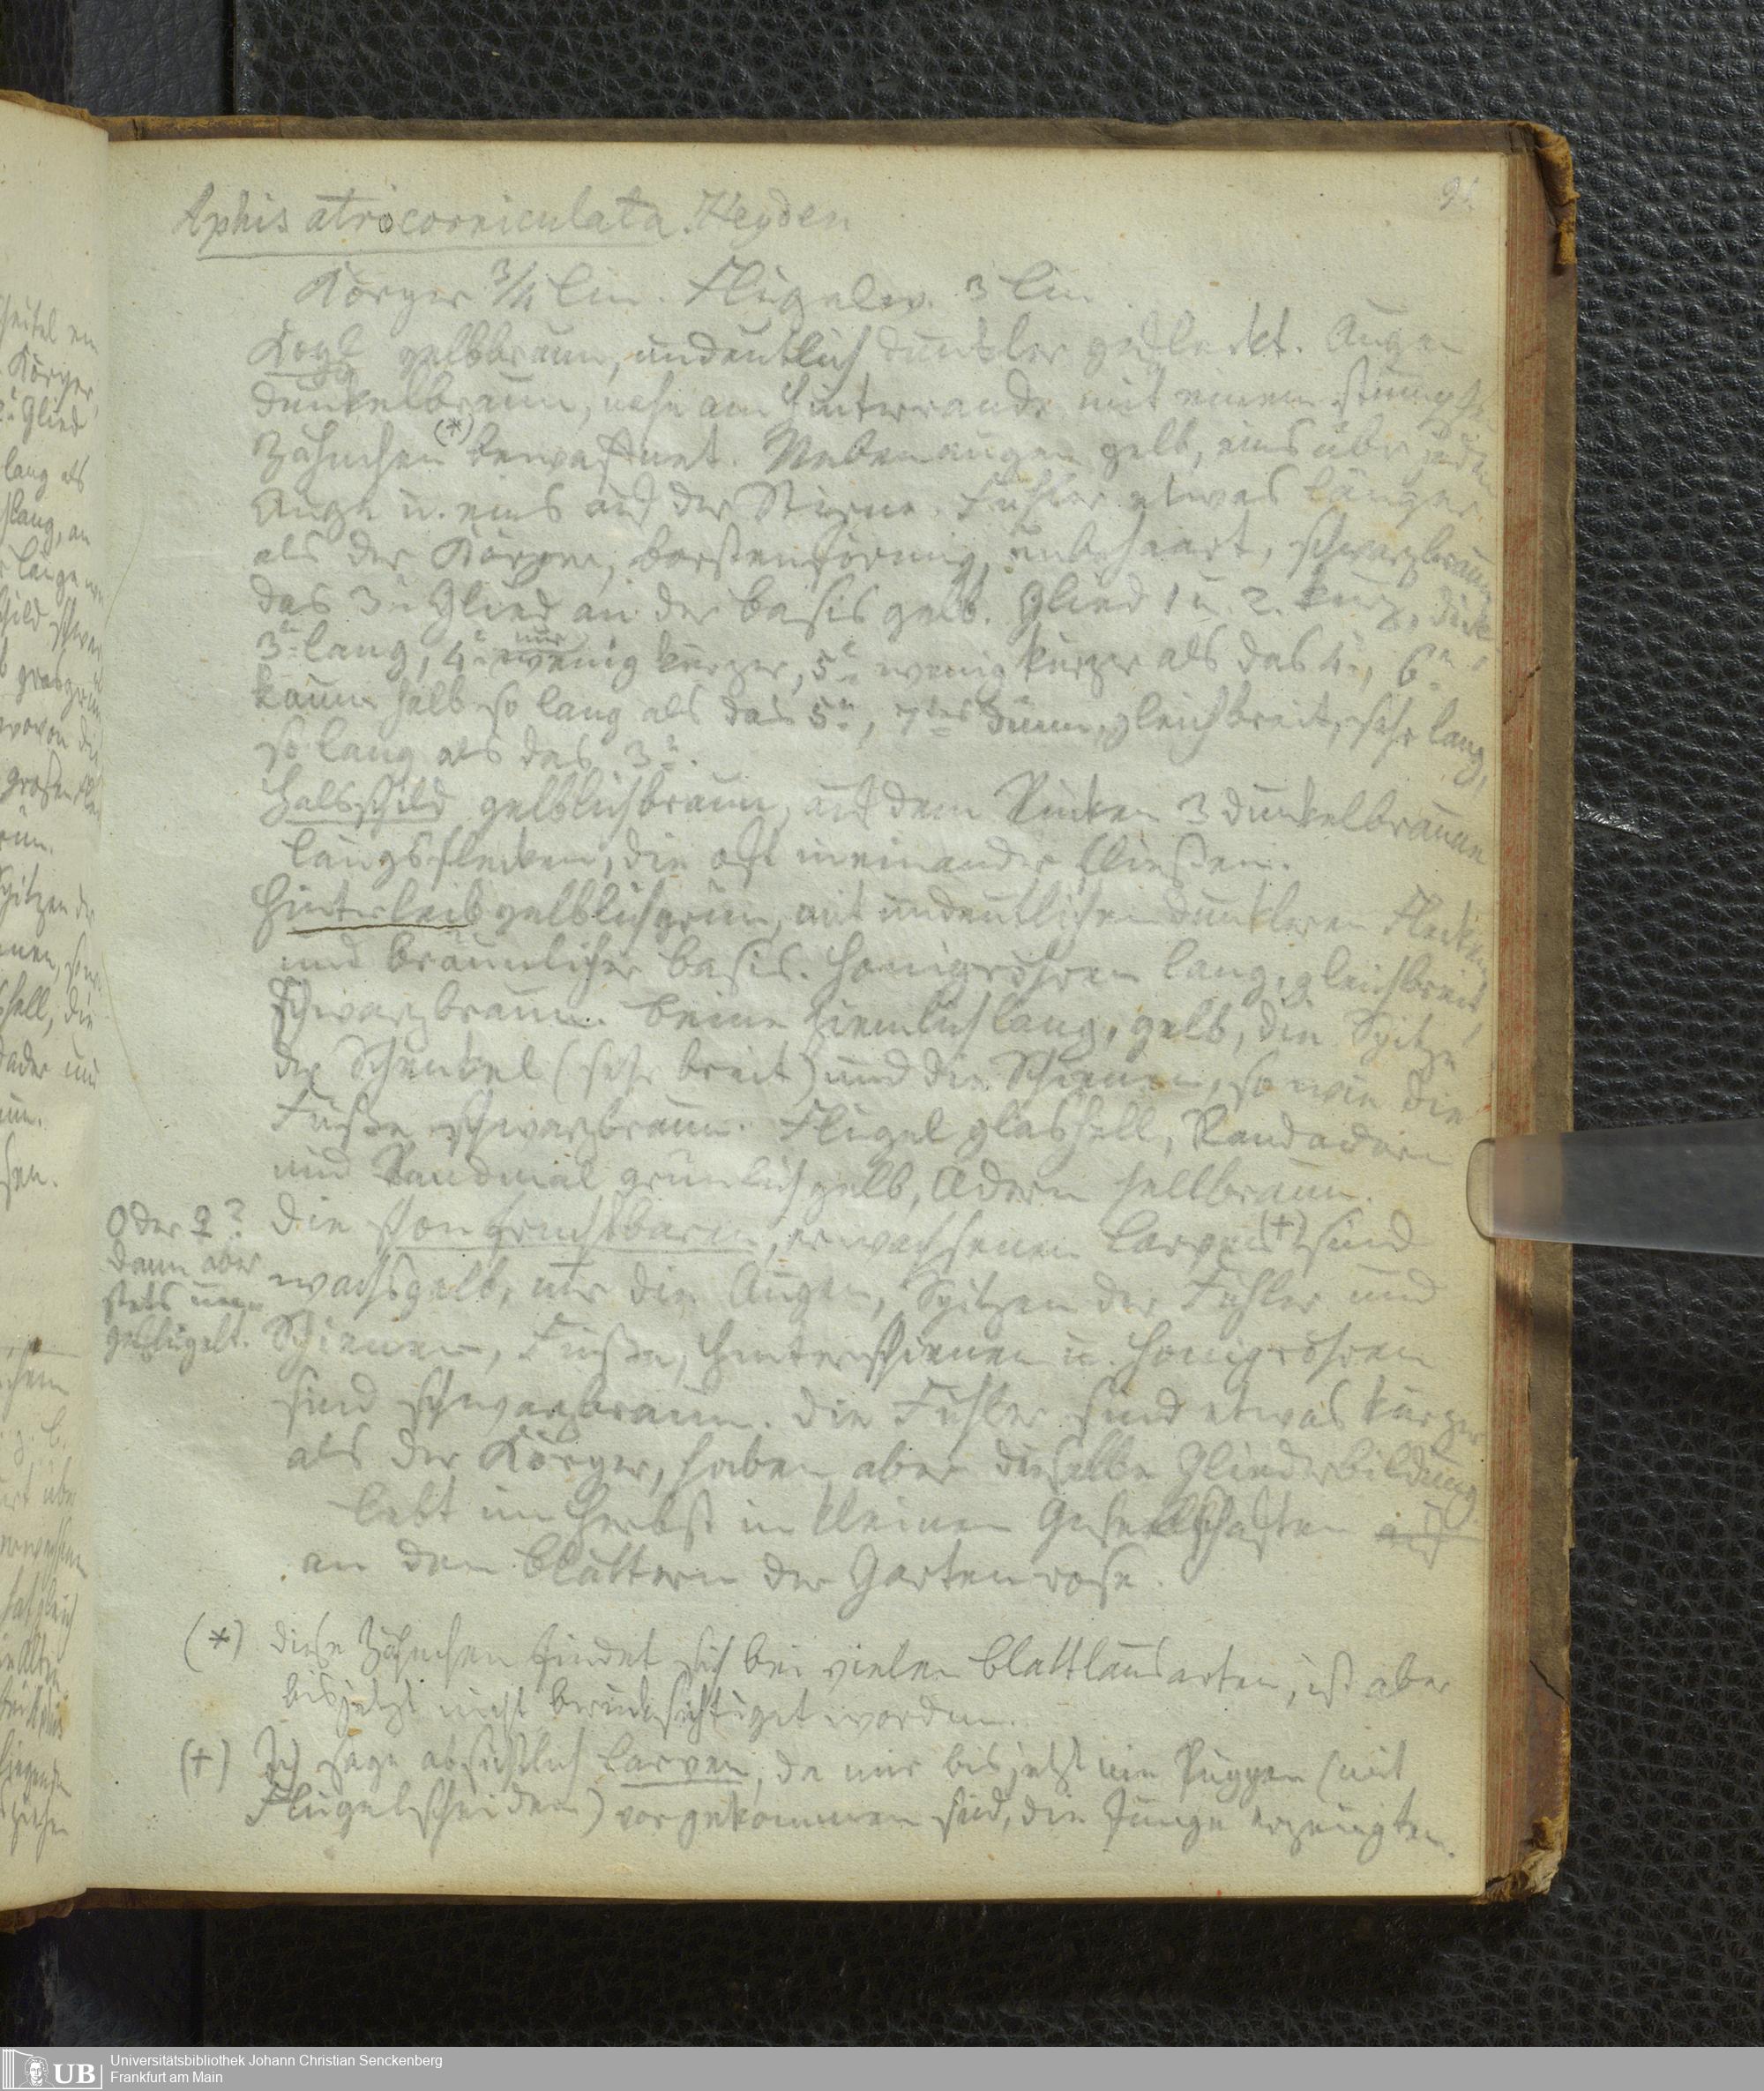 91.
Aphis atrocorniculata. Heyden
Körper 3/4 lin. Flügelw. 3 lin.
Kopf gelbbraun, undeutlich dunkler gefleckt. Augen
dunkelbraun, nahe am Hinterrande mit einem stumpfen
Zähnchen (*) bewaffnet. Nebenaugen gelb, eins über jedem
Auge u. eins auf der Stirne. Fühler etwas länger
als der Körper, borstenförmig, unbehaart, schwarzbraun
das 3te Glied an der Basis gelb. Glied 1 u. 2. kurz, dick
3te lang, 4te nur wenig kürzer, 5te wenig kürzer als das 4te, 6te
kaum halb so lang als das 5te, 7tes dünn, gleichbreit, sehr lang,
so lang als das 3te.
Halsschild gelblichbraun, auf dem Rücken 3 dunkelbraune
Längsflecken, die oft in einander fließen.
Hinterleib gelblichgrün, mit undeutlichen dunkleren Flecken
und bräunlicher Basis. Honigröhren lang, gleichbreit,
schwarzbraun. Beine ziemlich lang, gelb, die Spitze
der Schenkel (sehr breit) und die Schienen, so wie die
Füße schwarzbraun. Flügel glashell, Randadern
und Randmal grünlichgelb, Adern hellbraun.
Die schon fruchtbaren, erwachsenen Larven (+) sind
wachsgelb, nur die Augen, Spitzen der Fühler und
Schienen, Füße, Hinterschienen u. Honigröhren
sind schwarzbraun. Die Fühler sind etwas kürzer
als der Körper, haben aber dieselbe Gliederbildung.
Lebt im Herbst in kleinen Gesellschaften auf
an den Blättern der Gartenrose.
Oder ♀?
dann aber
stets un-
geflügelt.
(*) Diese Zähnchen findet sich bei vielen Blattlausarten, ist aber
bis jetzt nicht berücksichtiget worden.
(+) Ich sage absichtlich Larven, da mir bis jetzt nie Puppen (mit
Flügelscheiden) vorgekommen sind, die Junge erzeugten.
Universitätsbibliothek Johann Christian Senckenberg
Frankfurt am Main
UB